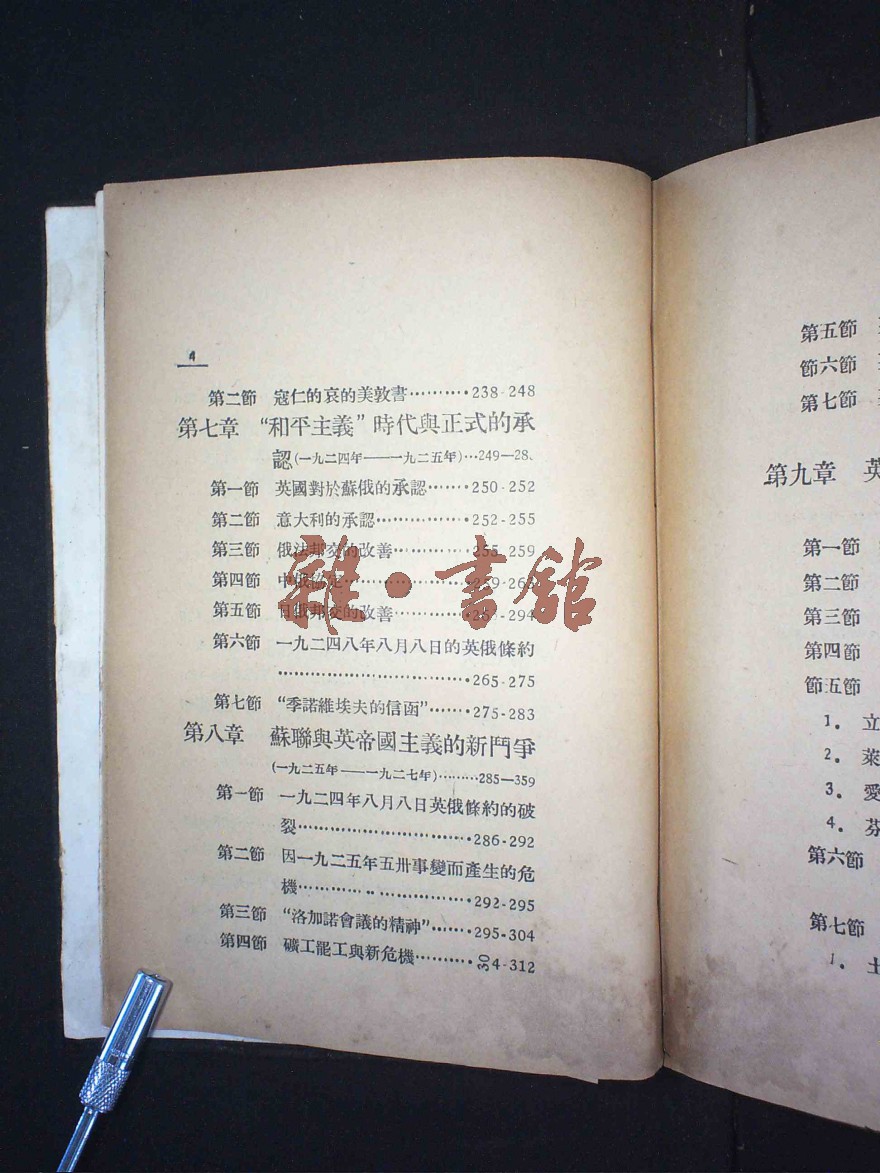 4
第二節 寇仁的哀的美敦書··········238-248
第七章 “和平主義”時代與正式的承
認(一九二四年——一九二五年)···249—28
第一節 英國對於蘇俄的承認·······250-252
第二節 意大利的承認···············252-255
第三節 俄法邦交的改善············255-259
第四節 中俄協定
第五節 日俄邦交的改善
第六節 一九二四八年八月八日的英俄條約
······························265-275
第七節 “季諾維埃夫的信函”·······275-283
第八章 蘇聯與英帝國主義的新鬥爭
(一九二五年——一九二七年)·········285—359
第一節 一九二四年八月八日英俄條約的破
裂···························286-292
第二節 因一九二五年五卅事變而產生的危
機···························292-295
第三節 “洛加諾會議的精神”·······295-304
第四節 礦工罷工與新危機··········304-312
雜·書館
第五節
節六節
第七節
第九章 英
第一節
第二節
第三節
第四節
節五節
1. 立
2. 萊
3. 愛
4. 芬
第六節
第七節
1. 土